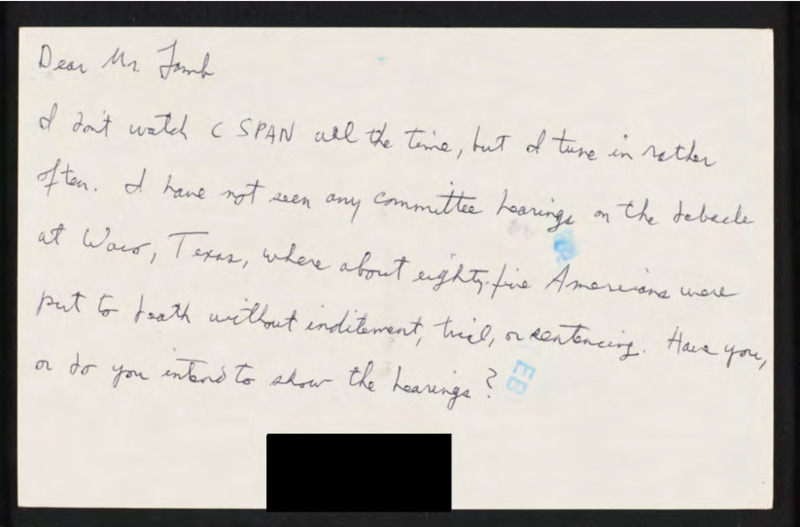 Dear Mr. Lamb
I don't watch C SPAN all the time, but I tune in rather
often. I have not seen any committee hearings on the debacle
at Waco, Texas, where about eighty-five Americans were
put to death without inditement, trial, or sentencing. Have you,
or do you intend to show the hearings?
EB